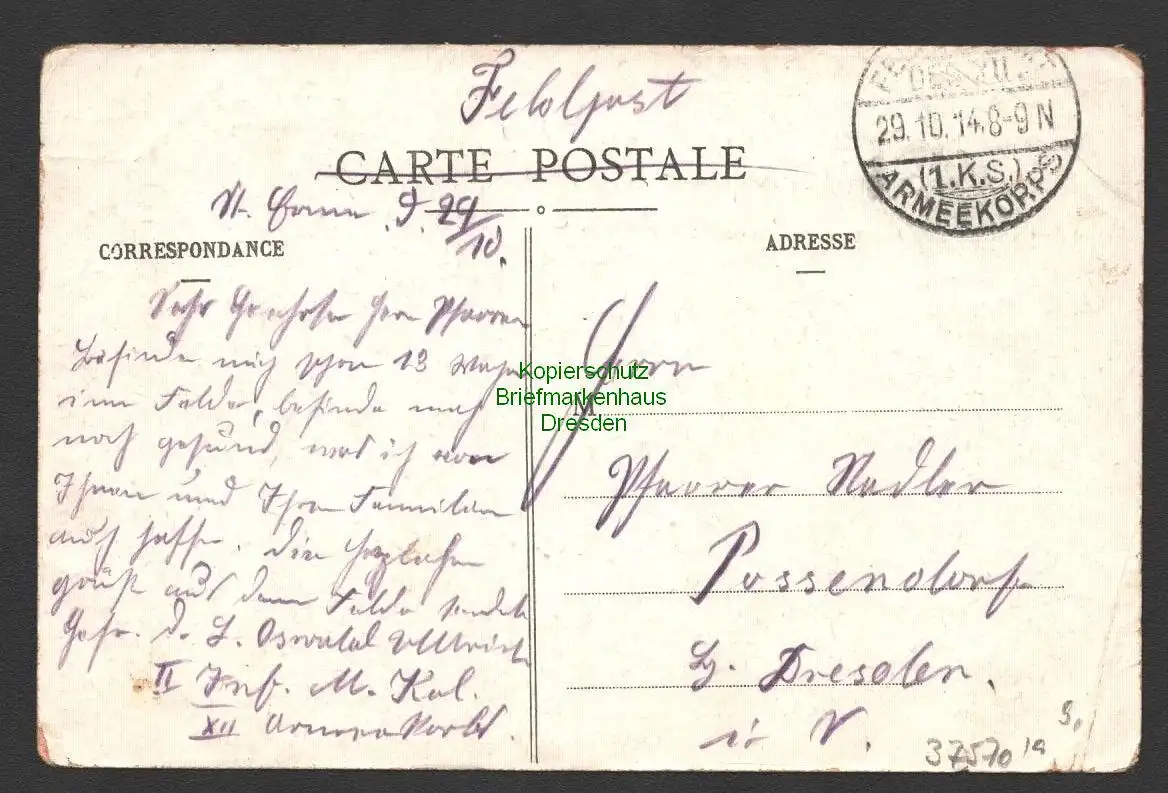 Feldpost
CARTE POSTALE
29.10.14.8-9 N
(1.K.S.)
ARMEEKORPS
29/10.
CORRESPONDANCE
ADRESSE
Sehr Geehrter Herr Pfarrer
Befinde mich schon 13 Woche
im Felde, befinde mich
noch gesund, was ich von
Ihnen und Ihrer Familie
auch hoffe. Die herzlichsten
grüße aus dem Felde sendet
Gefr. d. L. Oswald Ullrich
II Inf. M. Kol.
XII Armee Korbs.
Herrn
M
Pfarrer Nadler
Possendorf
b. Dresden.
Kopierschutz
Briefmarkenhaus
Dresden
37570